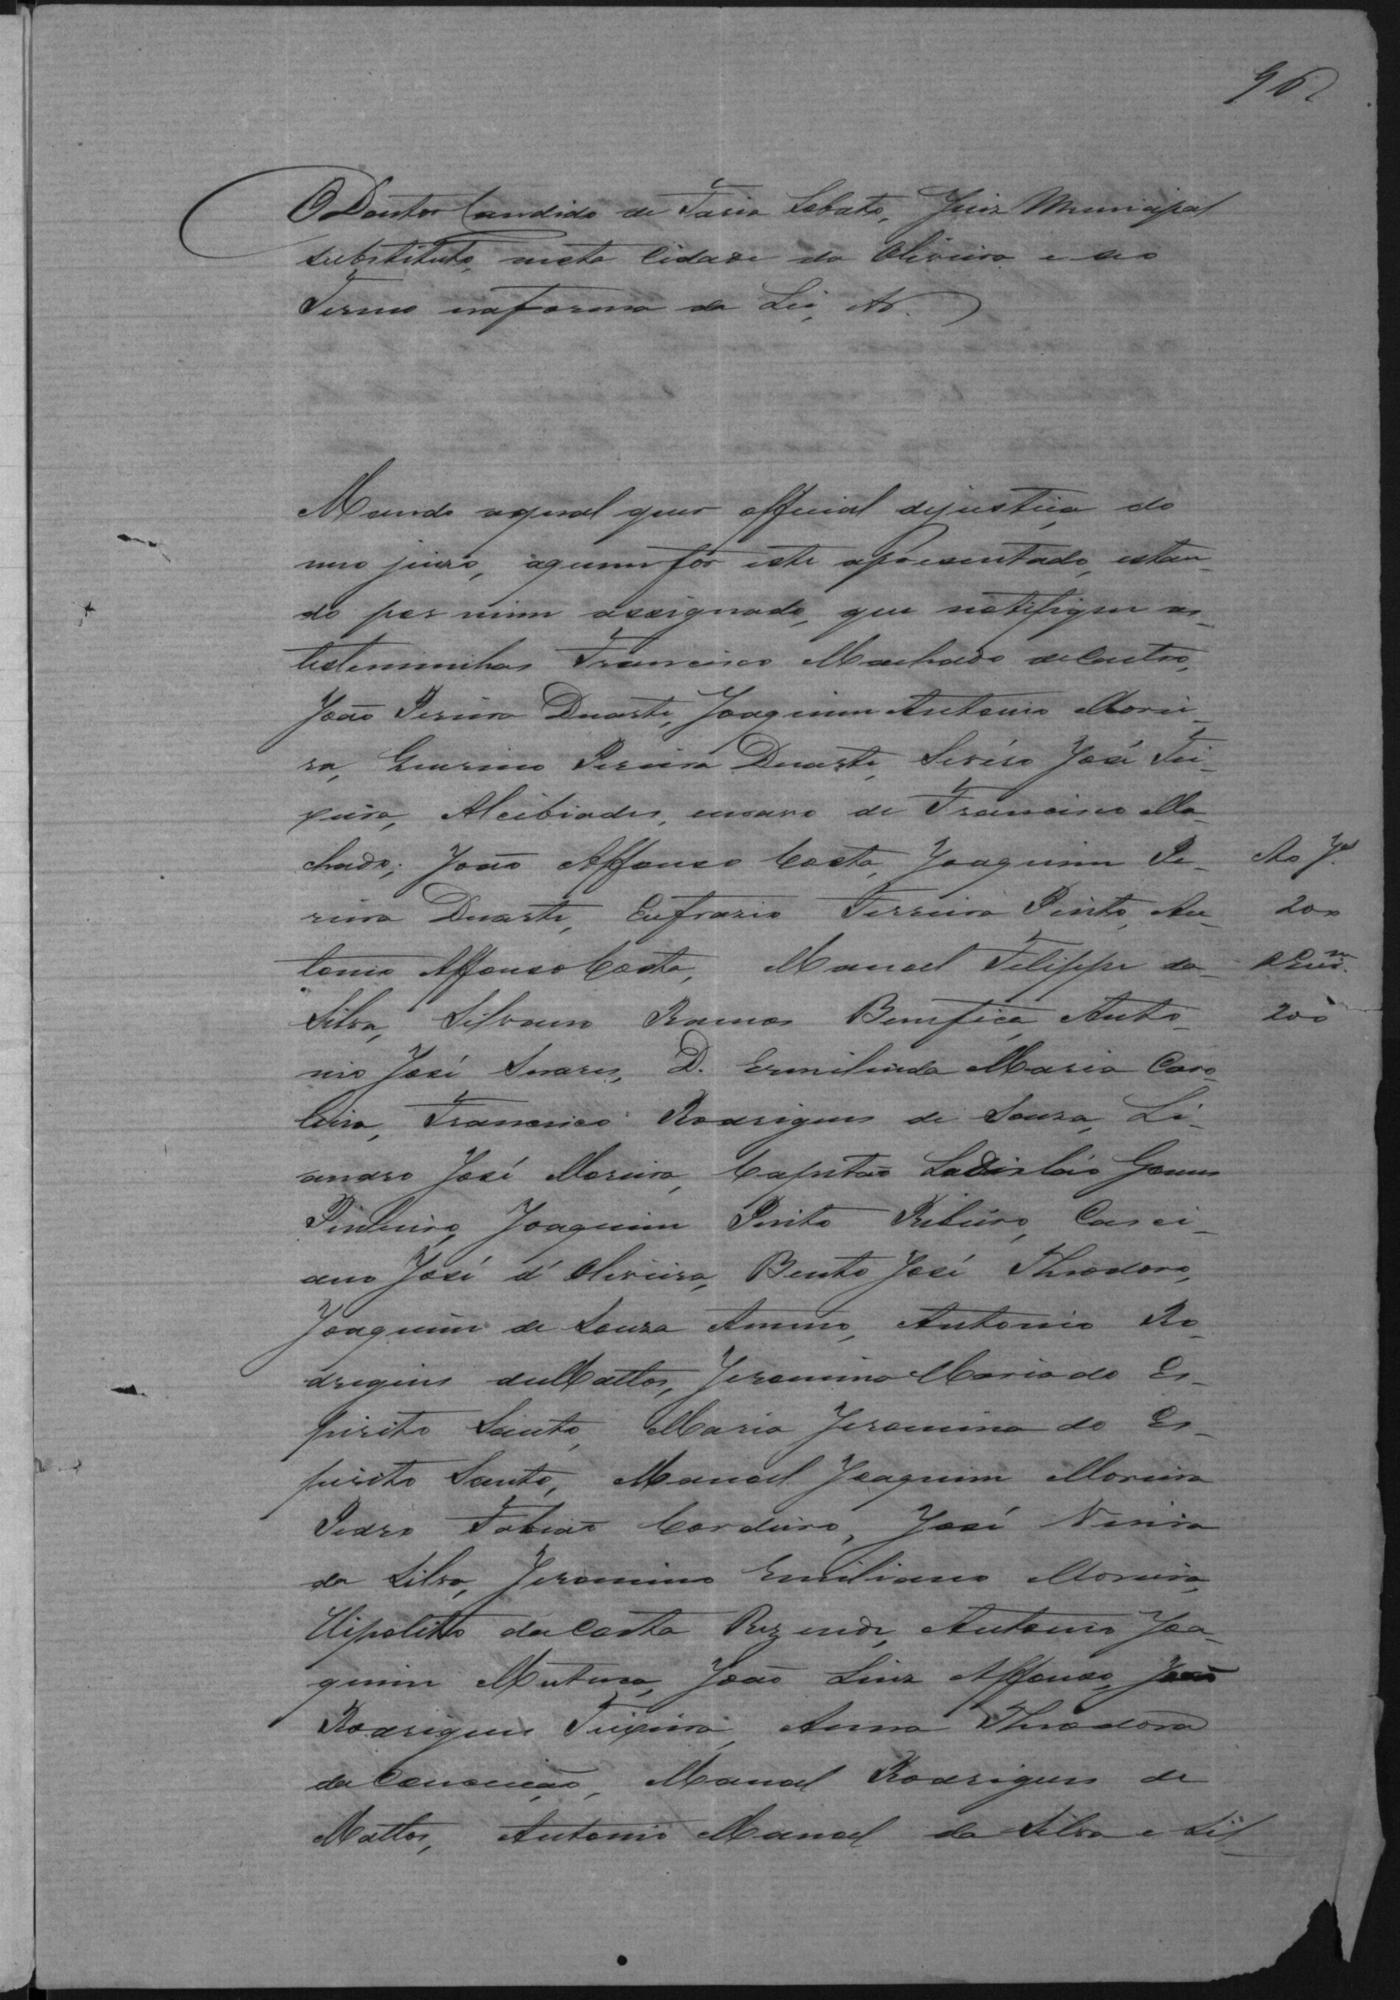 96
O Doutor Candido de Faria Lobato, Juiz Municipal
substituto, nesta Cidade da Oliveira e seo
Termo na forma da Lei, &.
Mando aqual quer official dejustiça do
meo juizo, aquem for este apresentado, estan-
do por mim assignado, que notifique as
testeminhas Francisco Machado deCastro,
João Pereira Duarte, Joaquim Antonio Morei-
ra, Guerino Pereira Duarte, Severo José Tei-
xeira, Alcibiades, escravo de Francisco Ma-
chado; João Affonso Costa, Joaquim Pe-
reira Duarte, Eufrazio Ferreira Pinto, An-
tonio Affonso Costa, Manoel Filippe da
Silva, Silvano Ramos Bemfica, Anto-
nio José Soares, D. Ermilinda Maria Caro-
lina, Francisco Rodrigues de Souza, Li-
andro José Moreira, Capitão Ladisláo Gomes
Pinheiro, Joaquim Pinto Ribeiro, Cassi-
ano José d'Oliveira, Bento José Theodoro,
Joaquim de Souza Ameno, Antonio Ro-
drigues deMattos, Jeronima Maria do Es-
pirito Santo, Maria Jeronima do Es-
pirito Santo, Manoel Joaquim Moreira
Pedro Tobias Cordeiro, José Vieira
da Silva, Jeronimo Emiliano Moreira,
Hipolitto da Costa Rezende, Antonio Joa-
quim Mutuca, João Luiz Affonso, João
Rodrigues Teixeira, Anna Theodora
da Conceição, Manoel Rodrigues de
Mattos, Antonio Manoel da Silva e Sil
Ao J.
200
200